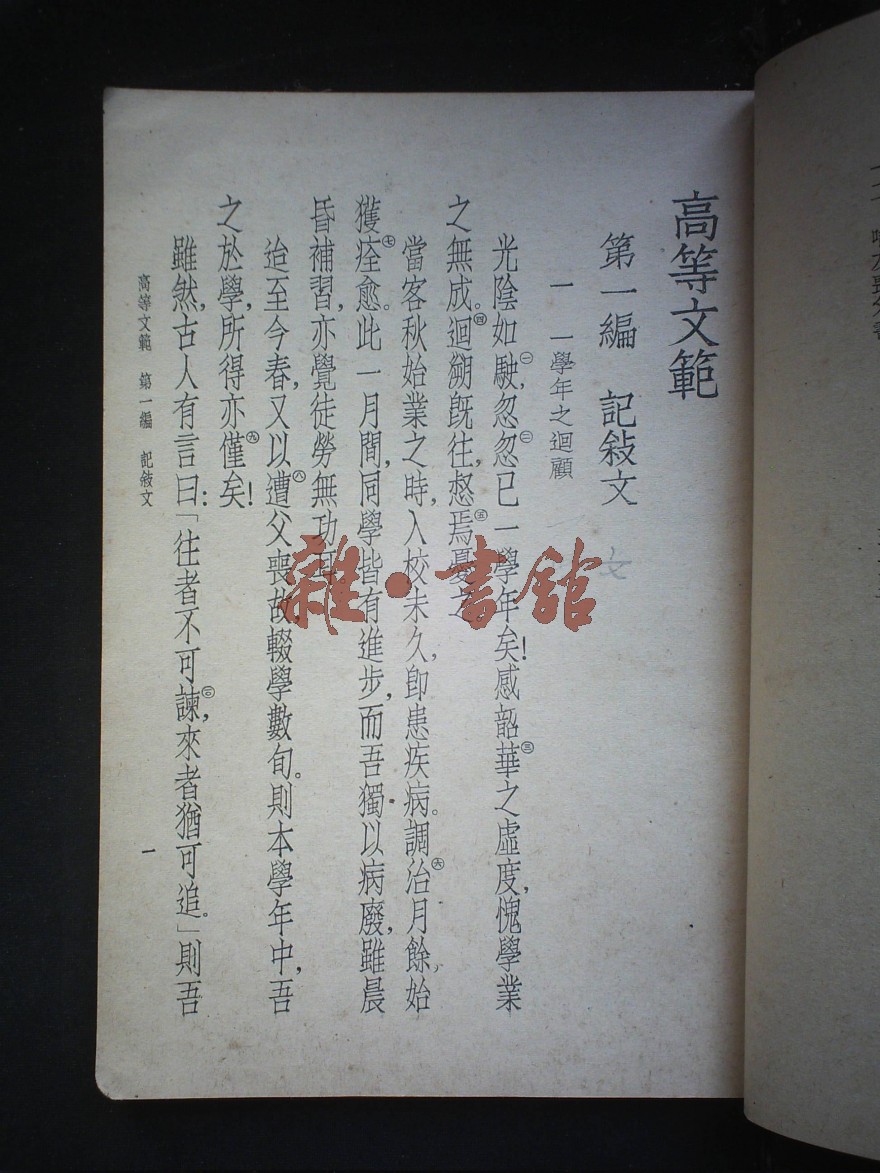 高等文範
第一編　記敍文
一　一學年之迴顧
光陰如駛㊀，忽忽㊁已一學年矣！感韶華㊂之虛度，愧學業
之無成。迴溯㊃旣往，惄焉㊄憂之
當客秋始業之時，入校未久，卽患疾病。調治㊅月餘，始
獲痊㊆愈。此一月間，同學皆有進步，而吾獨以病廢，雖晨
昏補習，亦覺徒勞無功
迨至今春，又以遭㊇父喪故，輟學數旬。則本學年中，吾
之於學，所得亦僅㊈矣！
雖然，古人有言曰：「往者不可諫㊂，來者猶可追。」則吾
高等文範　第一編　記敍文
一
雜·書館